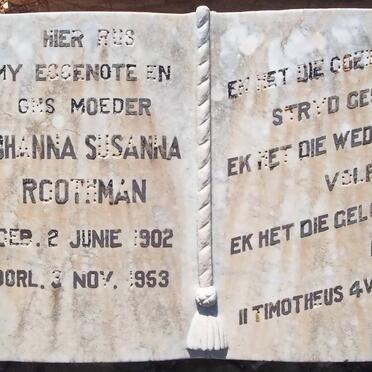 HIER RUS
MY EGGENOTE EN
ONS MOEDER
OHANNA SUSANNA
ROOTHMAN
GEB. 2 JUNIE 1902
OORL. 3 NOV. 1953
EK HET DIE GOE
STRYD GES
EK HET DIE WED
VOL
EK HET DIE GELO
II TIMOTHEUS 4V